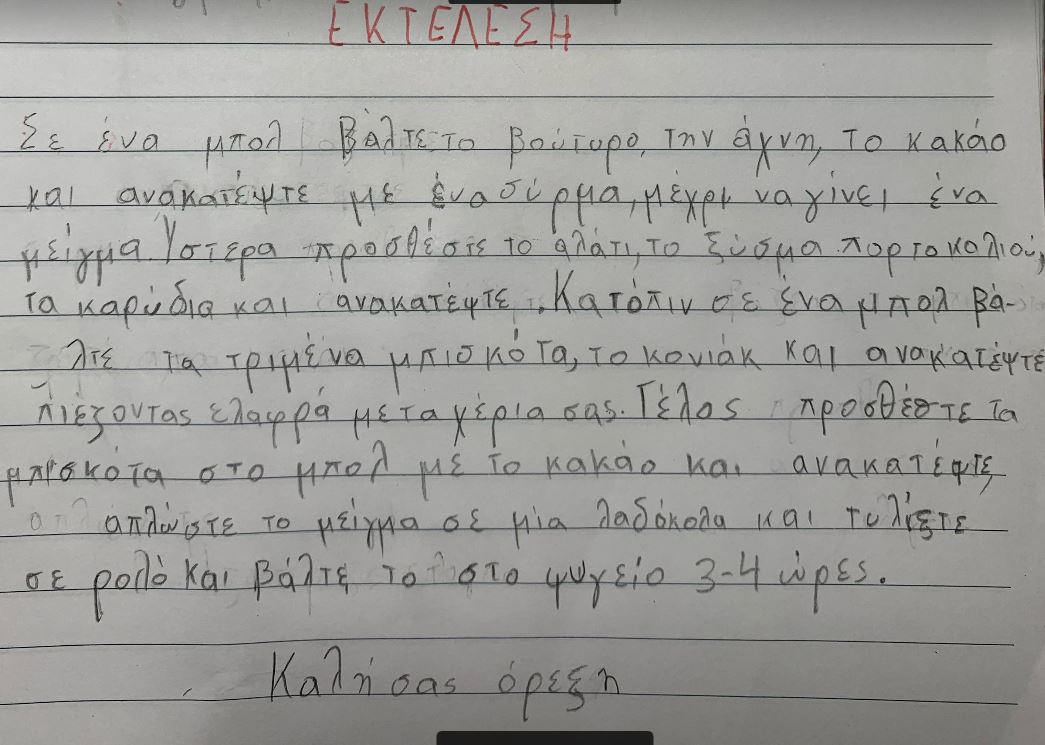 ΕΚΤΕΛΕΣΗ
Σε ένα μπολ βάλτε το βούτυρο, την άχνη, το κακάο
και ανακατέψτε με ένα σύρμα, μέχρι να γίνει ένα
μείγμα. Ύστερα προσθέστε το αλάτι, το ξύσμα πορτοκολιού,
τα καρύδια και ανακατέψτε. Κατόπιν σε ένα μπολ βά-
λτε τα τριμένα μπισκότα, το κονιάκ και ανακατέψτε
πιέζοντας ελαφρά με τα χέρια σας. Τέλος προσθέστε τα
μπισκότα στο μπολ με το κακάο και ανακατέψτε,
απλώστε το μείγμα σε μία λαδόκολα και τυλίξτε
σε ρολό και βάλτε το στο ψυγείο 3-4 ώρες.
Καλή σας όρεξη